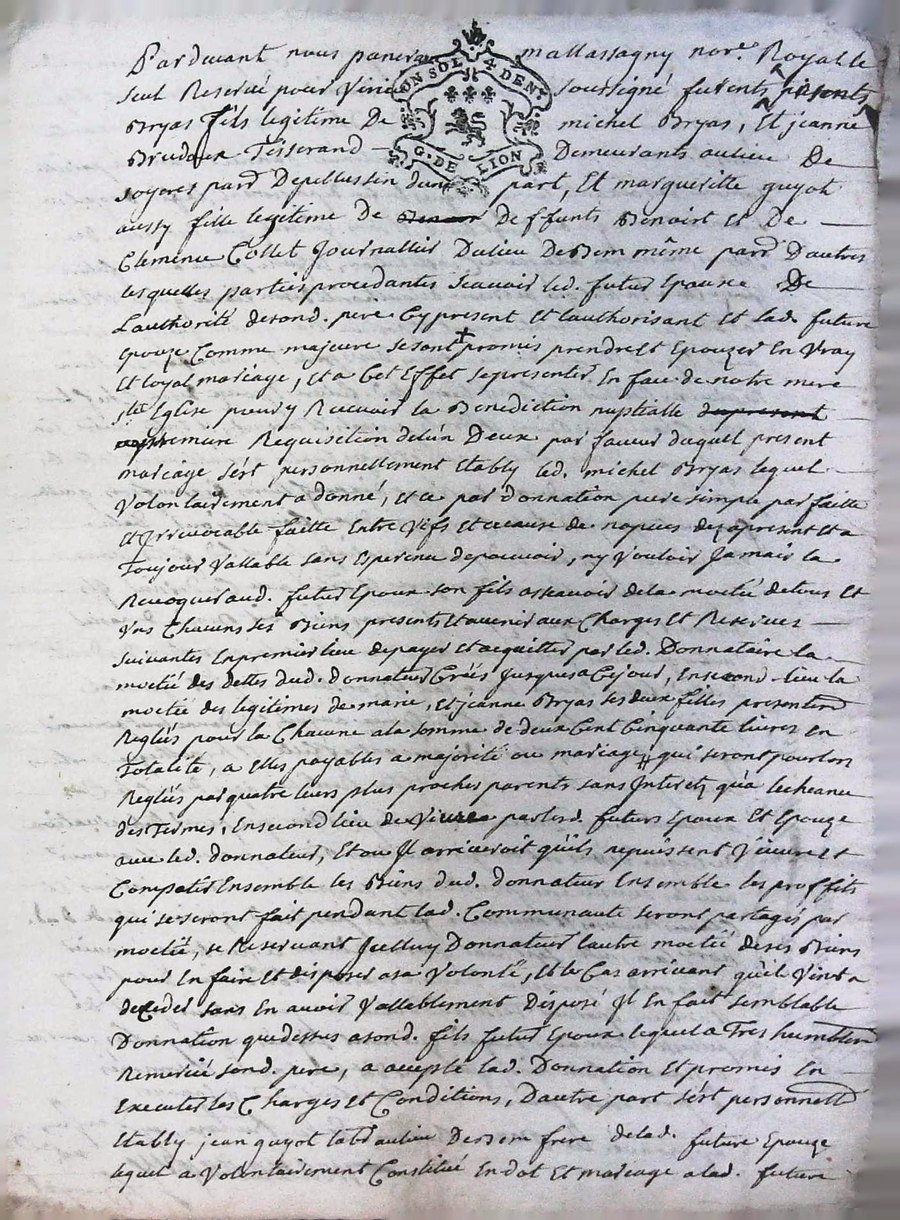 Pardevant nous mallassagny nore. Royal le
seul Reservé pour soussigné furents presents
UN SOL 4 DEN.
G. DE LION
Bryas fils legitime De michel Bryas, Et jeanne
Tisserand Demeurants au lieu De
soyeres parr. Depellussin dune part, Et margueritte guyot
aussy fille legitime de deffunts Benoist Et De
Clemence Collet Journallier Du lieu même parr. D'autres
lesquelles parties procedantes scavoir led. futur Epoux De
Lauthorité desond. pere Cy present Et L'authorisant Et lad. future
Epouze Comme majeure se sont promis prendre Et Epouzer En Vray
Et loyal mariage, Et a Cet Effet se presenter En face de notre mere
ste Eglise pour y Recevoir la Benediction nuptialle
premiere Requisition delun Deux par faveur duquel present
mariage sést personnellement Etably led. michel Bryas lequel
Volontairement a donné, Et ce par donnation pure simple parfaitte
Et Irrevocable faitte Entre Vifs Et acause de nopces dez apresent Et a
Toujour Vallable sans Esperence depouvoir, ny Vouloir Jamais la
Revoquer aud. futur Epoux son fils ascavoir dela moctié detous Et
Uns Chacuns ses Biens presents Et avenir aux Charges Et Reserves
suivantes En premier lieu depayer Et acquitter par led. Donnataire la
moctié des dettes dud. Donnateur Créés Jusques a Cejour, En second lieu la
moctié des legitimes de marie, Et jeanne Bryas ses deux filles
Reglés pour la Chacune ala somme de deux Cent Cinquante livres En
Totalité, a Elles payables a majorité ou mariage, qui seront pour lors
Reglés par quatre leurs plus proches parents sans Interetz qu'a lecheance
des Termes, En second lieu de Vivre par lesd. futurs Epoux Et Epouze
avec led. donnateur, Et ou Il arriveroit qu'ils nepuissent Vivre Et
Compatir Ensemble les Biens dud. donnateur Ensemble les proffits
qui se seront fait pendant lad. Communauté seront partagés par
moctié, se Reservant Icelluy Donnateur lautre moctié deses Biens
pour En faire Et disposer asa Volonté, Et le Cas arrivant qu'il Vint a
deceder sans En avoir Vallablement Disposé Il En fait semblable
Donnation que dessus asond. fils futur Epoux lequel a Tres humblem
Remercié sond. pere, a accepté lad. Donnation Et promis En
Executer les Charges Et Conditions, Dautre part sést personnell
Etably jean guyot frere delad. future Epouze
lequel a Volontairement Constitué En dot Et mariage alad. future